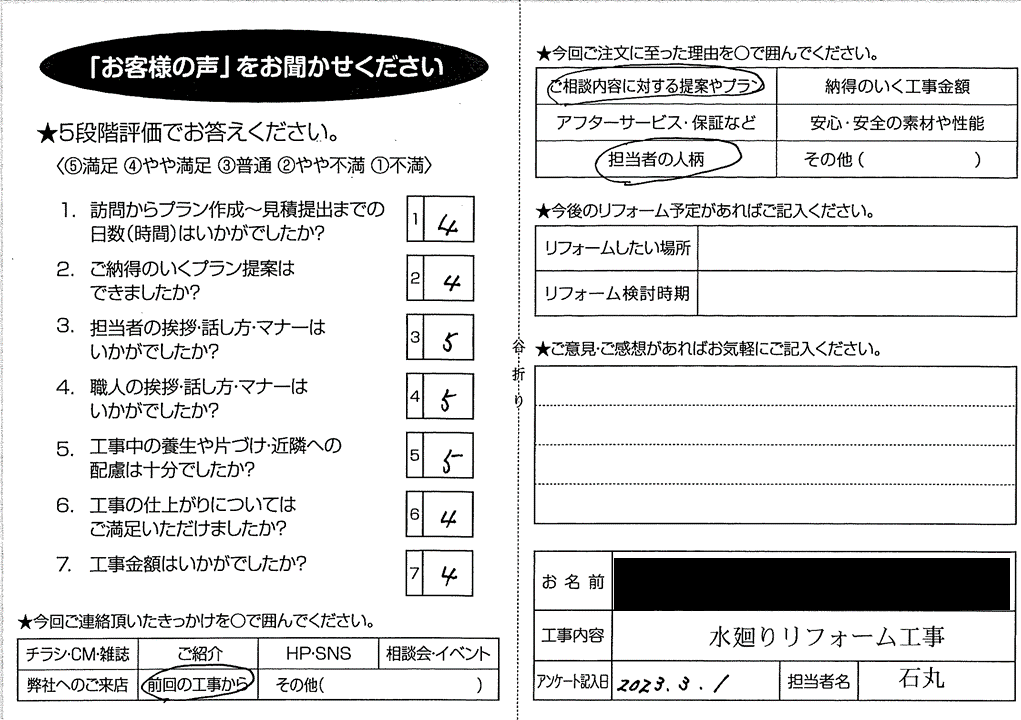 「お客様の声」をお聞かせください
★5段階評価でお答えください。
〈⑤満足 ④やや満足 ③普通 ②やや不満 ①不満〉
1. 訪問からプラン作成〜見積提出までの
日数(時間)はいかがでしたか?
1 4
2. ご納得のいくプラン提案は
できましたか?
2 4
3. 担当者の挨拶・話し方・マナーは
いかがでしたか?
3 5
4. 職人の挨拶・話し方・マナーは
いかがでしたか?
4 5
5. 工事中の養生や片づけ・近隣への
配慮は十分でしたか?
5 5
6. 工事の仕上がりについては
ご満足いただけましたか?
6 4
7. 工事金額はいかがでしたか?
7 4
★今回ご連絡頂いたきっかけを〇で囲んでください。
チラシ・CM・雑誌 ご紹介 HP・SNS 相談会・イベント
弊社へのご来店 前回の工事から その他( )
谷折り
★今回ご注文に至った理由を〇で囲んでください。
ご相談内容に対する提案やプラン 納得のいく工事金額
アフターサービス・保証など 安心・安全の素材や性能
担当者の人柄 その他( )
★今後のリフォーム予定があればご記入ください。
リフォームしたい場所
リフォーム検討時期
★ご意見・ご感想があればお気軽にご記入ください。
お名前
工事内容 水廻りリフォーム工事
アンケート記入日 2023.3.1 担当者名 石丸